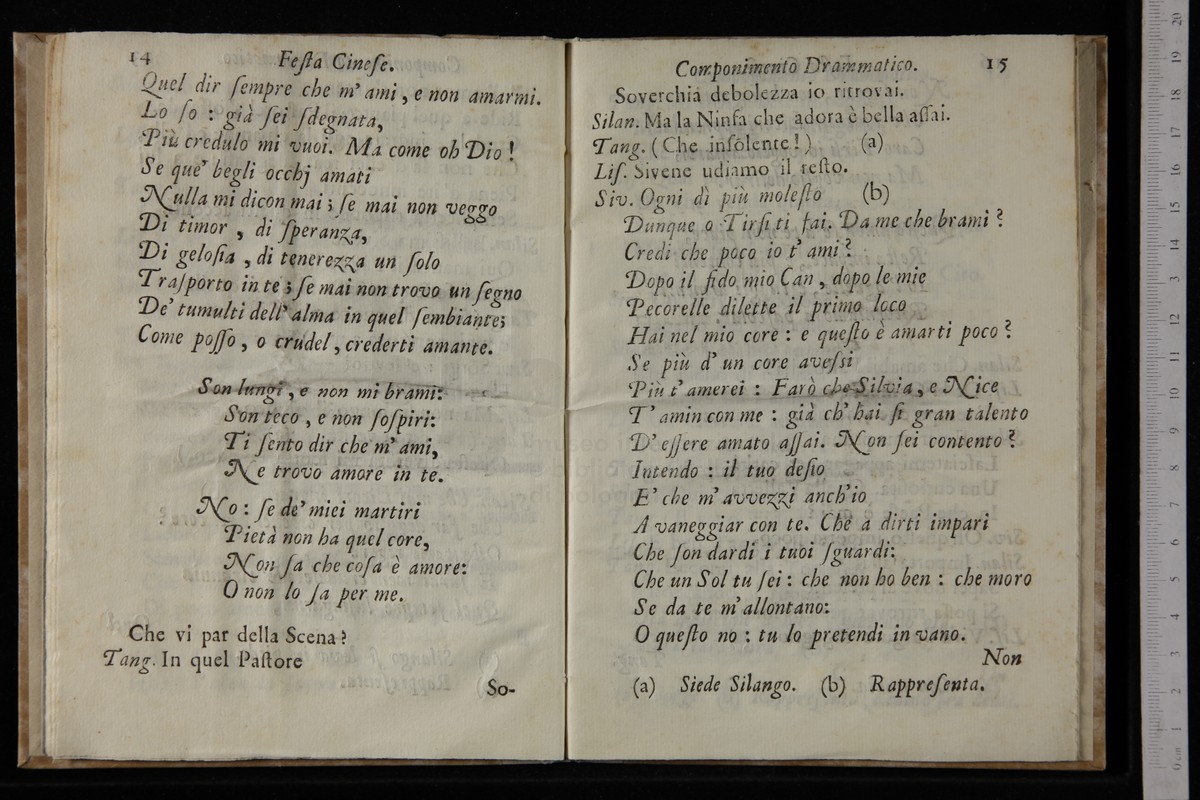 14 Feſta Cineſe.
Quel dir ſempre che m' ami, e non amarmi.
Lo ſo : già ſei ſdegnata,
Più credulo mi vuoi. Ma come oh Dio !
Se que' begli occhj amati
Nulla mi dicon mai ; ſe mai non veggo
Di timor , di ſperanza,
Di geloſia , di tenerezza un ſolo
Traſporto in te ; ſe mai non trovo un ſegno
De' tumulti dell' alma in quel ſembiante;
Come poſſo , o crudel , crederti amante.
Son lungi , e non mi brami:
Son teco , e non ſoſpiri:
Ti ſento dir che m' ami,
Ne trovo amore in te.
No : ſe de' miei martiri
Pietà non ha quel core,
Non ſa che coſa è amore:
O non lo ſa per me.
Che vi par della Scena ?
Tang. In quel Paſtore
So-
Componimento Drammatico. 15
Soverchia debolezza io ritrovai.
Silan. Ma la Ninfa che adora è bella aſſai.
Tang. ( Che inſolente ! ) (a)
Liſ. Sivene udiamo il reſto.
Siv. Ogni dì più moleſto (b)
Dunque o Tirſi ti fai. Da me che brami ?
Credi che poco io t' ami ?
Dopo il fido mio Can , dopo le mie
Pecorelle dilette il primo loco
Hai nel mio core : e queſto è amarti poco ?
Se più d' un core aveſsi
Più t' amerei : Farò che Silvia , e Nice
T' amin con me : già ch' hai ſi gran talento
D' eſſere amato aſſai. Non ſei contento ?
Intendo : il tuo deſio
E' che m' avvezzi anch' io
A vaneggiar con te. Che a dirti impari
Che ſon dardi i tuoi ſguardi:
Che un Sol tu ſei : che non ho ben : che moro
Se da te m' allontano:
O queſto no : tu lo pretendi in vano.
Non
(a) Siede Silango. (b) Rappreſenta.